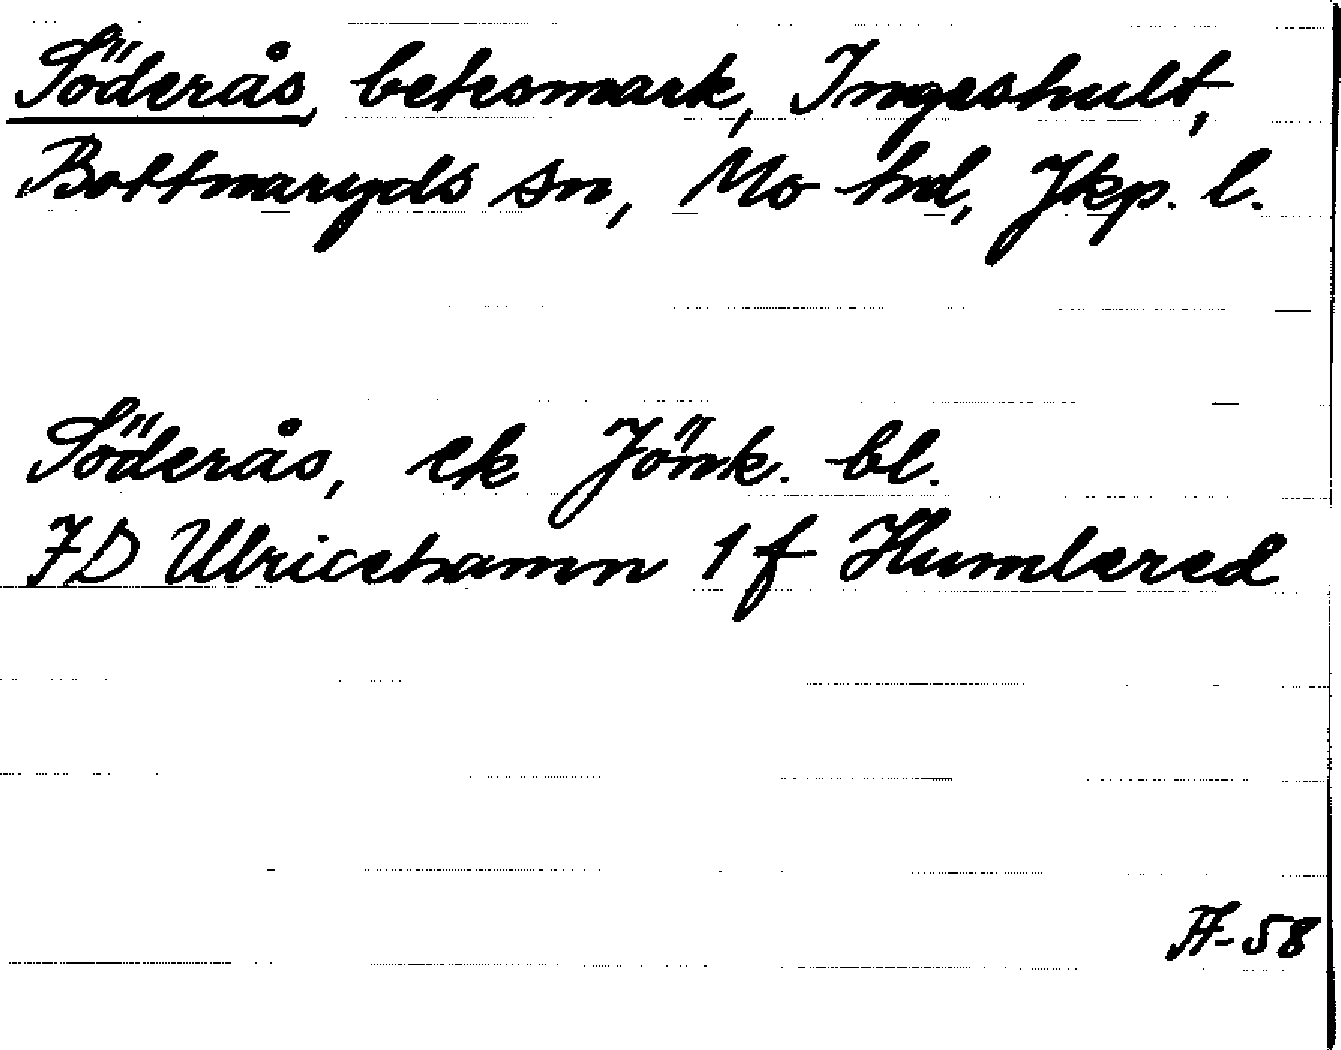 Söderås, betesmark, Ingeshult,
Bottnaryds sn, Mo hd, Jkp. l.
Söderås, ek Jönk. bl.
7D Ulricehamn 1 f Humlered
-58